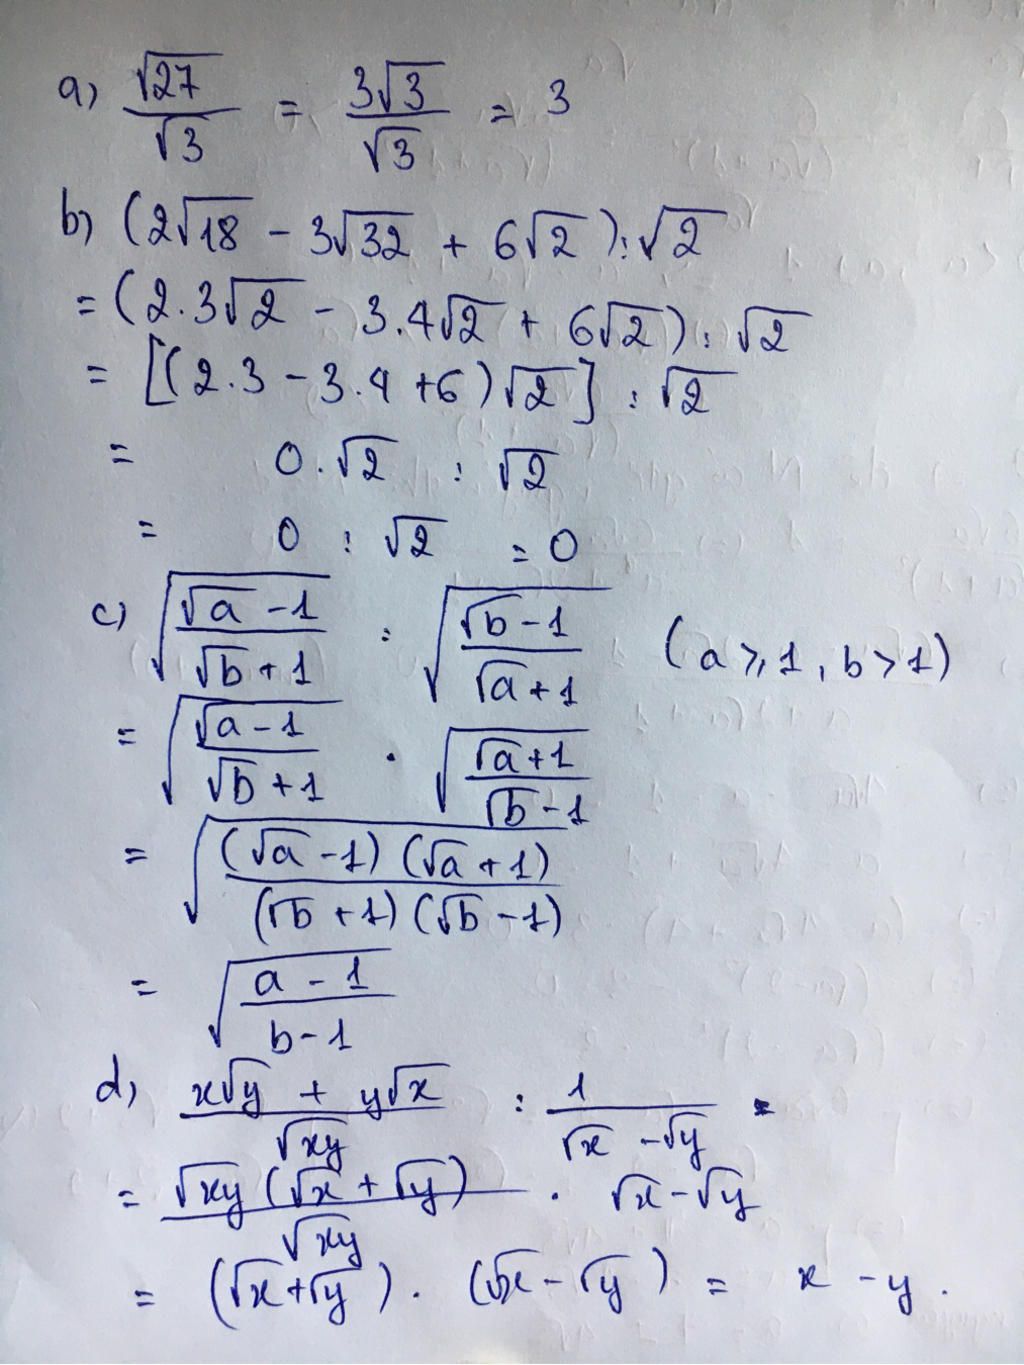 a) √27/√3 = 3√3/√3 = 3
b) (2√18 - 3√32 + 6√2) : √2
= (2.3√2 - 3.4√2 + 6√2) : √2
= [(2.3 - 3.4 + 6)√2] : √2
= 0.√2 : √2
= 0 : √2 = 0
c) √((√a - 1)/(√b + 1)) : √((√b - 1)/(√a + 1)) (a ⩾ 1, b > 1)
= √((√a - 1)/(√b + 1)) . √((√a + 1)/(√b - 1))
= √((√a - 1)(√a + 1)/(√b + 1)(√b - 1))
= √((a - 1)/(b - 1))
d) (x√y + y√x)/√xy : 1/(√x - √y)
= √xy(√x + √y)/√xy . √x - √y
= (√x + √y) . (√x - √y) = x - y.